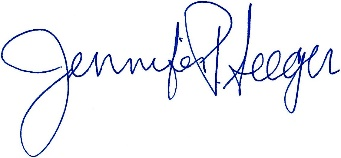 Jennifer P. Heeger